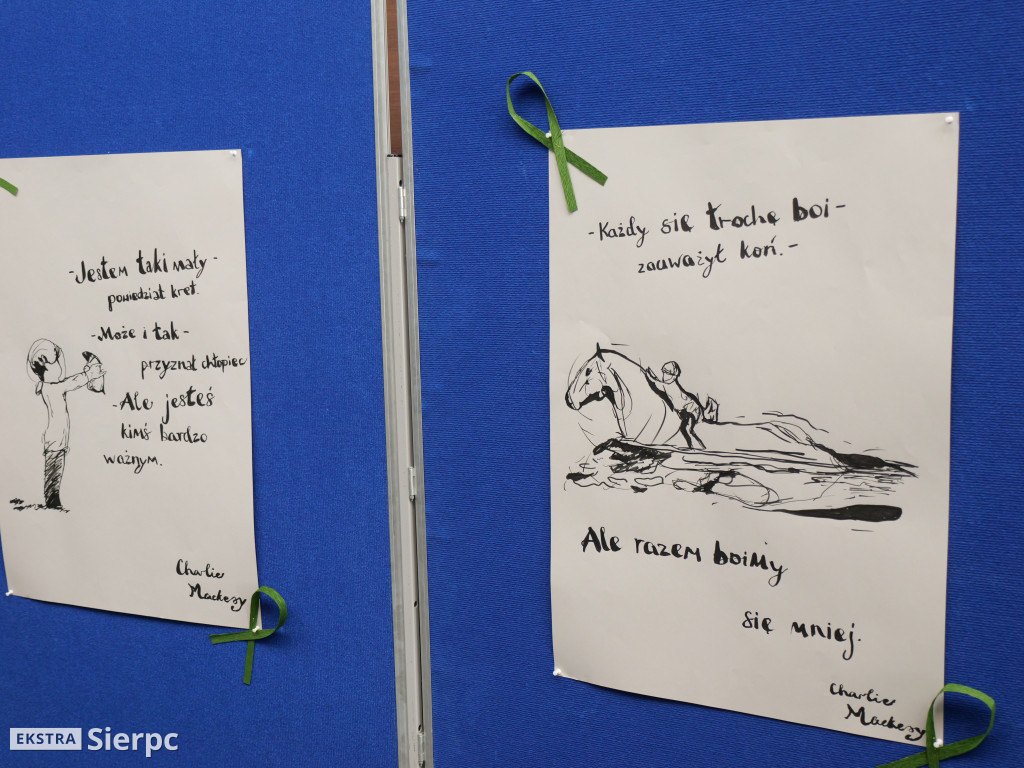 -Jestem taki mały -
powiedział kret.
-Może i tak-
przyznał chłopiec
-Ale jesteś
kimś bardzo
ważnym.
Charlie
Mackezy
-Każdy się trochę boi-
zauważył koń.-
Ale razem boimy
się mniej.
Charlie
Mackezy
EKSTRA Sierpc